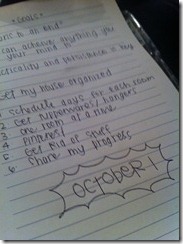 "GOALS"
to an end!
can achieve anything you
your mind to
practicality and persistence is key
Get my house organized
1 schedule days for each room
2 Get tupperwares/hangers
3 one room at a time
4 Pinterest
5 Get rid of stuff
6 Share my progress
OCTOBER 1